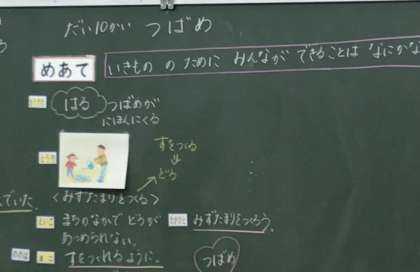 だい10かい つばめ
めあて
いきもの の ために みんなが できることは なにかな
はる
つばめが
にほんにくる
すをつくる
どろ
でいた。
〈みずたまりをつくる〉
まちのなかで どろが
あつめられない。
みずたまりをつくろう。
すをつくれるように。
つばめ